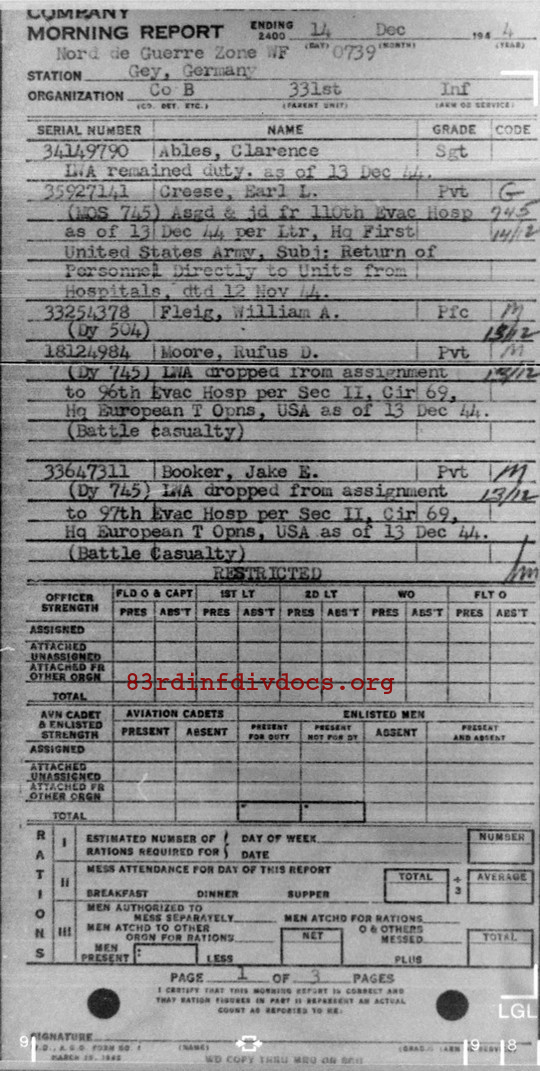 COMPANY
MORNING REPORT ENDING 2400 14 Dec 194 4
(DAY) (MONTH) (YEAR)
Nord de Guerre Zone WF 0739
STATION Gey, Germany
ORGANIZATION Co B 331st Inf
(CO. DET. ETC.) (PARENT UNIT) (ARM OR SERVICE)
SERIAL NUMBER NAME GRADE CODE
34149790 Ables, Clarence Sgt
LWA remained duty. as of 13 Dec 44.
35927141 Creese, Earl L. Pvt G
(MOS 745) Asgd & jd fr 110th Evac Hosp 745
as of 13 Dec 44 per Ltr, Hq First 14/12
United States Army, Subj: Return of
Personnel Directly to Units from
Hospitals, dtd 12 Nov 44.
33254378 Fleig, William A. Pfc M
(Dy 504) 13/12
18124984 Moore, Rufus D. Pvt M
(Dy 745) LWA dropped from assignment 13/12
to 96th Evac Hosp per Sec II, Cir 69,
Hq European T Opns, USA as of 13 Dec 44.
(Battle casualty)
33647311 Booker, Jake E. Pvt M
(Dy 745) LWA dropped from assignment 13/12
to 97th Evac Hosp per Sec II, Cir 69,
Hq European T Opns, USA as of 13 Dec 44.
(Battle Casualty)
RESTRICTED
OFFICER STRENGTH FLD O & CAPT 1ST LT 2D LT WO FLT O
PRES ABS'T PRES ABS'T PRES ABS'T PRES ABS'T PRES ABS'T
ASSIGNED
ATTACHED UNASSIGNED
ATTACHED FR OTHER ORGN
TOTAL
83rdinfdivdocs.org
AVN CADET & ENLISTED STRENGTH AVIATION CADETS ENLISTED MEN
PRESENT ABSENT PRESENT FOR DUTY PRESENT NOT FOR DY ABSENT PRESENT AND ABSENT
ASSIGNED
ATTACHED UNASSIGNED
ATTACHED FR OTHER ORGN
TOTAL
RATIONS
I ESTIMATED NUMBER OF RATIONS REQUIRED FOR DAY OF WEEK DATE NUMBER
II MESS ATTENDANCE FOR DAY OF THIS REPORT TOTAL ÷ 3 AVERAGE
BREAKFAST DINNER SUPPER
III MEN AUTHORIZED TO MESS SEPARATELY MEN ATCHD FOR RATIONS
MEN ATCHD TO OTHER ORGN FOR RATIONS NET O & OTHERS MESSED TOTAL
MEN PRESENT LESS PLUS
PAGE 1 OF 3 PAGES
I CERTIFY THAT THIS MORNING REPORT IS CORRECT AND
THAT RATION FIGURES IN PART III REPRESENT AN ACTUAL
COUNT AS REPORTED TO ME:
LGL
SIGNATURE
W.D., A.G.O. FORM NO. 1 (NAME) (GRADE)
MARCH
9 9 8
WD COPY THRU MRU OR